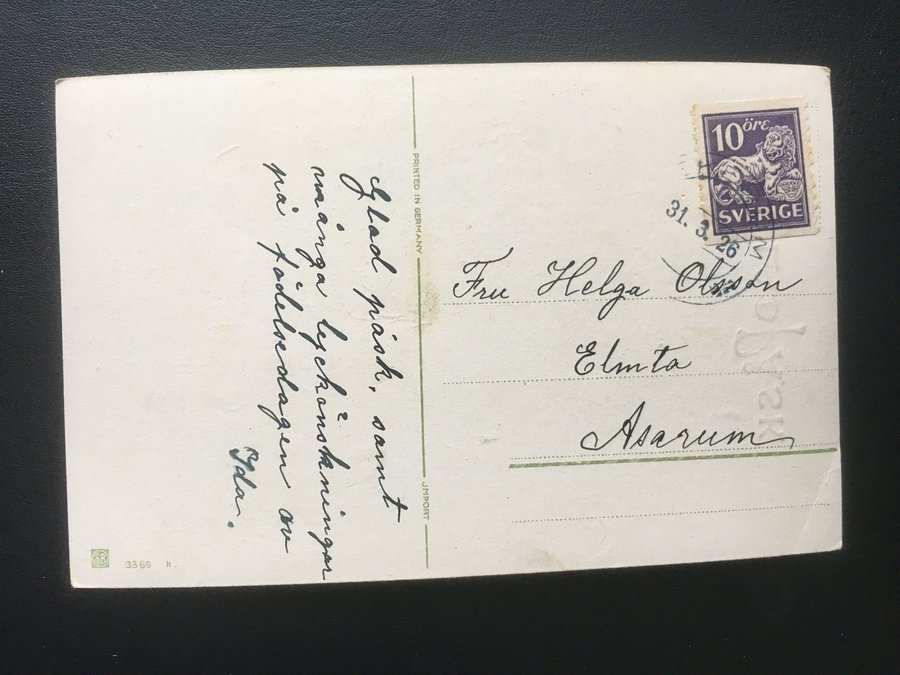 Glad påsk, samt
många lyckönskningar
på födelsedagen av
Ida.
PRINTED IN GERMANY
JMPORT
10 öre
SVERIGE
31.3.26
Fru Helga Olsson
Elmta
Asarum
SB
3369 H.